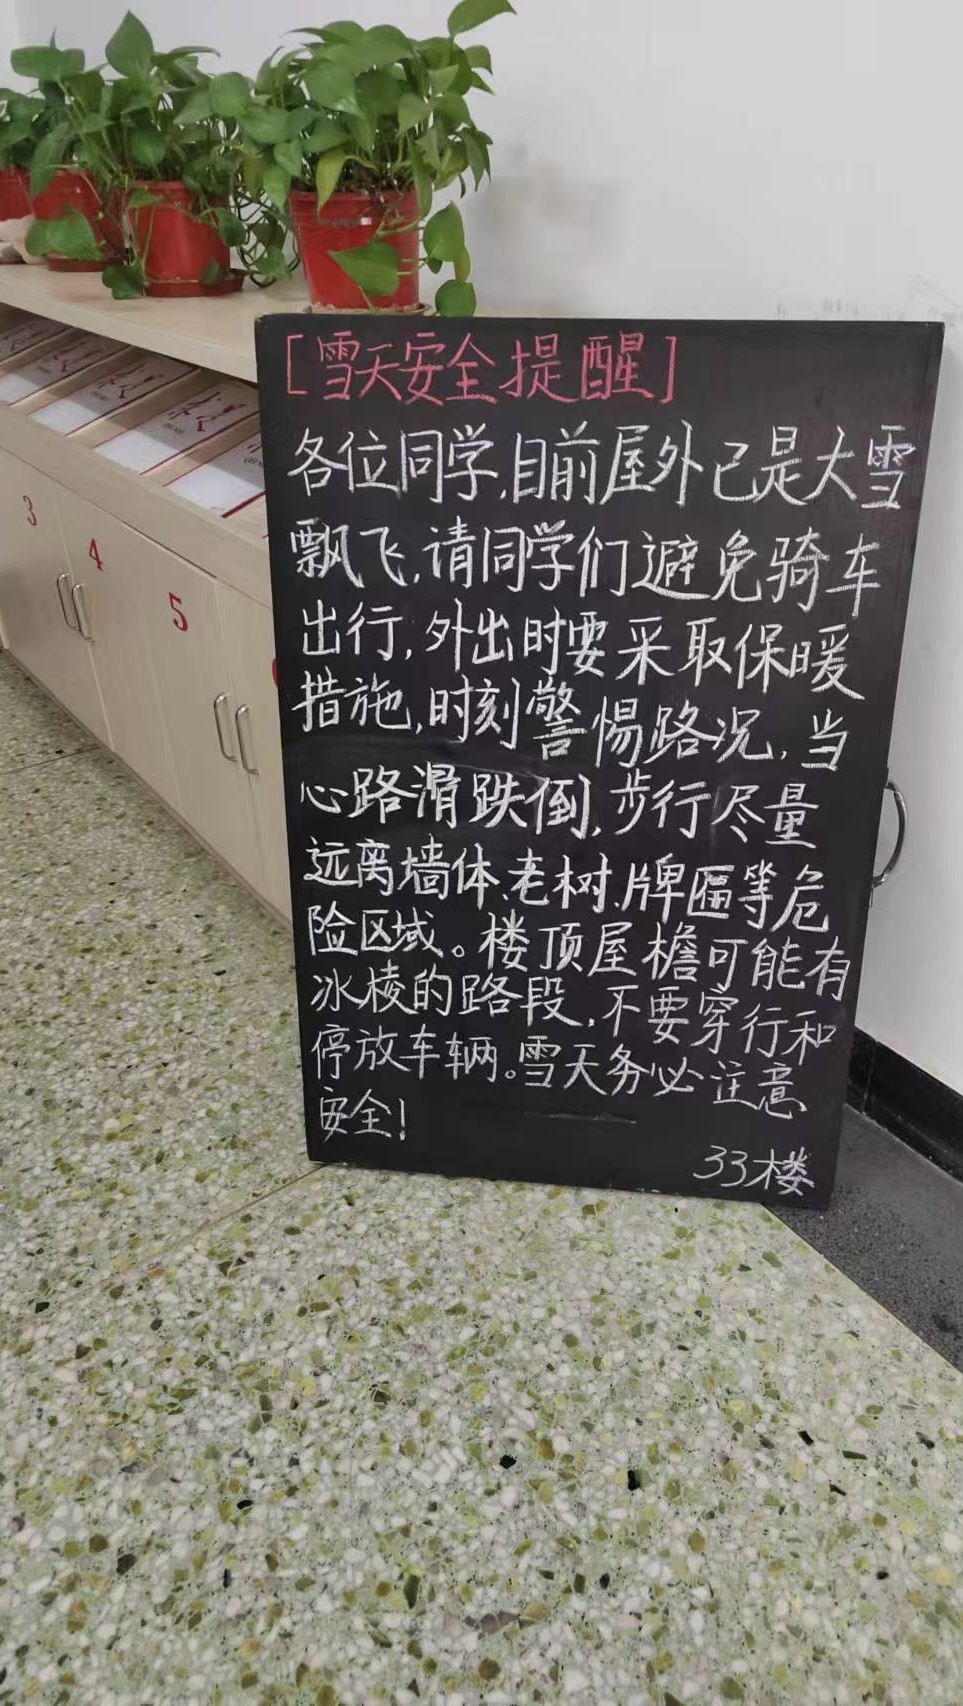 [雪天安全提醒]
各位同学,目前屋外已是大雪
飘飞,请同学们避免骑车
出行,外出时要采取保暖
措施,时刻警惕路况,当
心路滑跌倒,步行尽量
远离墙体、老树、牌匾等危
险区域。楼顶屋檐可能有
冰棱的路段,不要穿行和
停放车辆。雪天务必注意
安全!
33楼
3
4
5